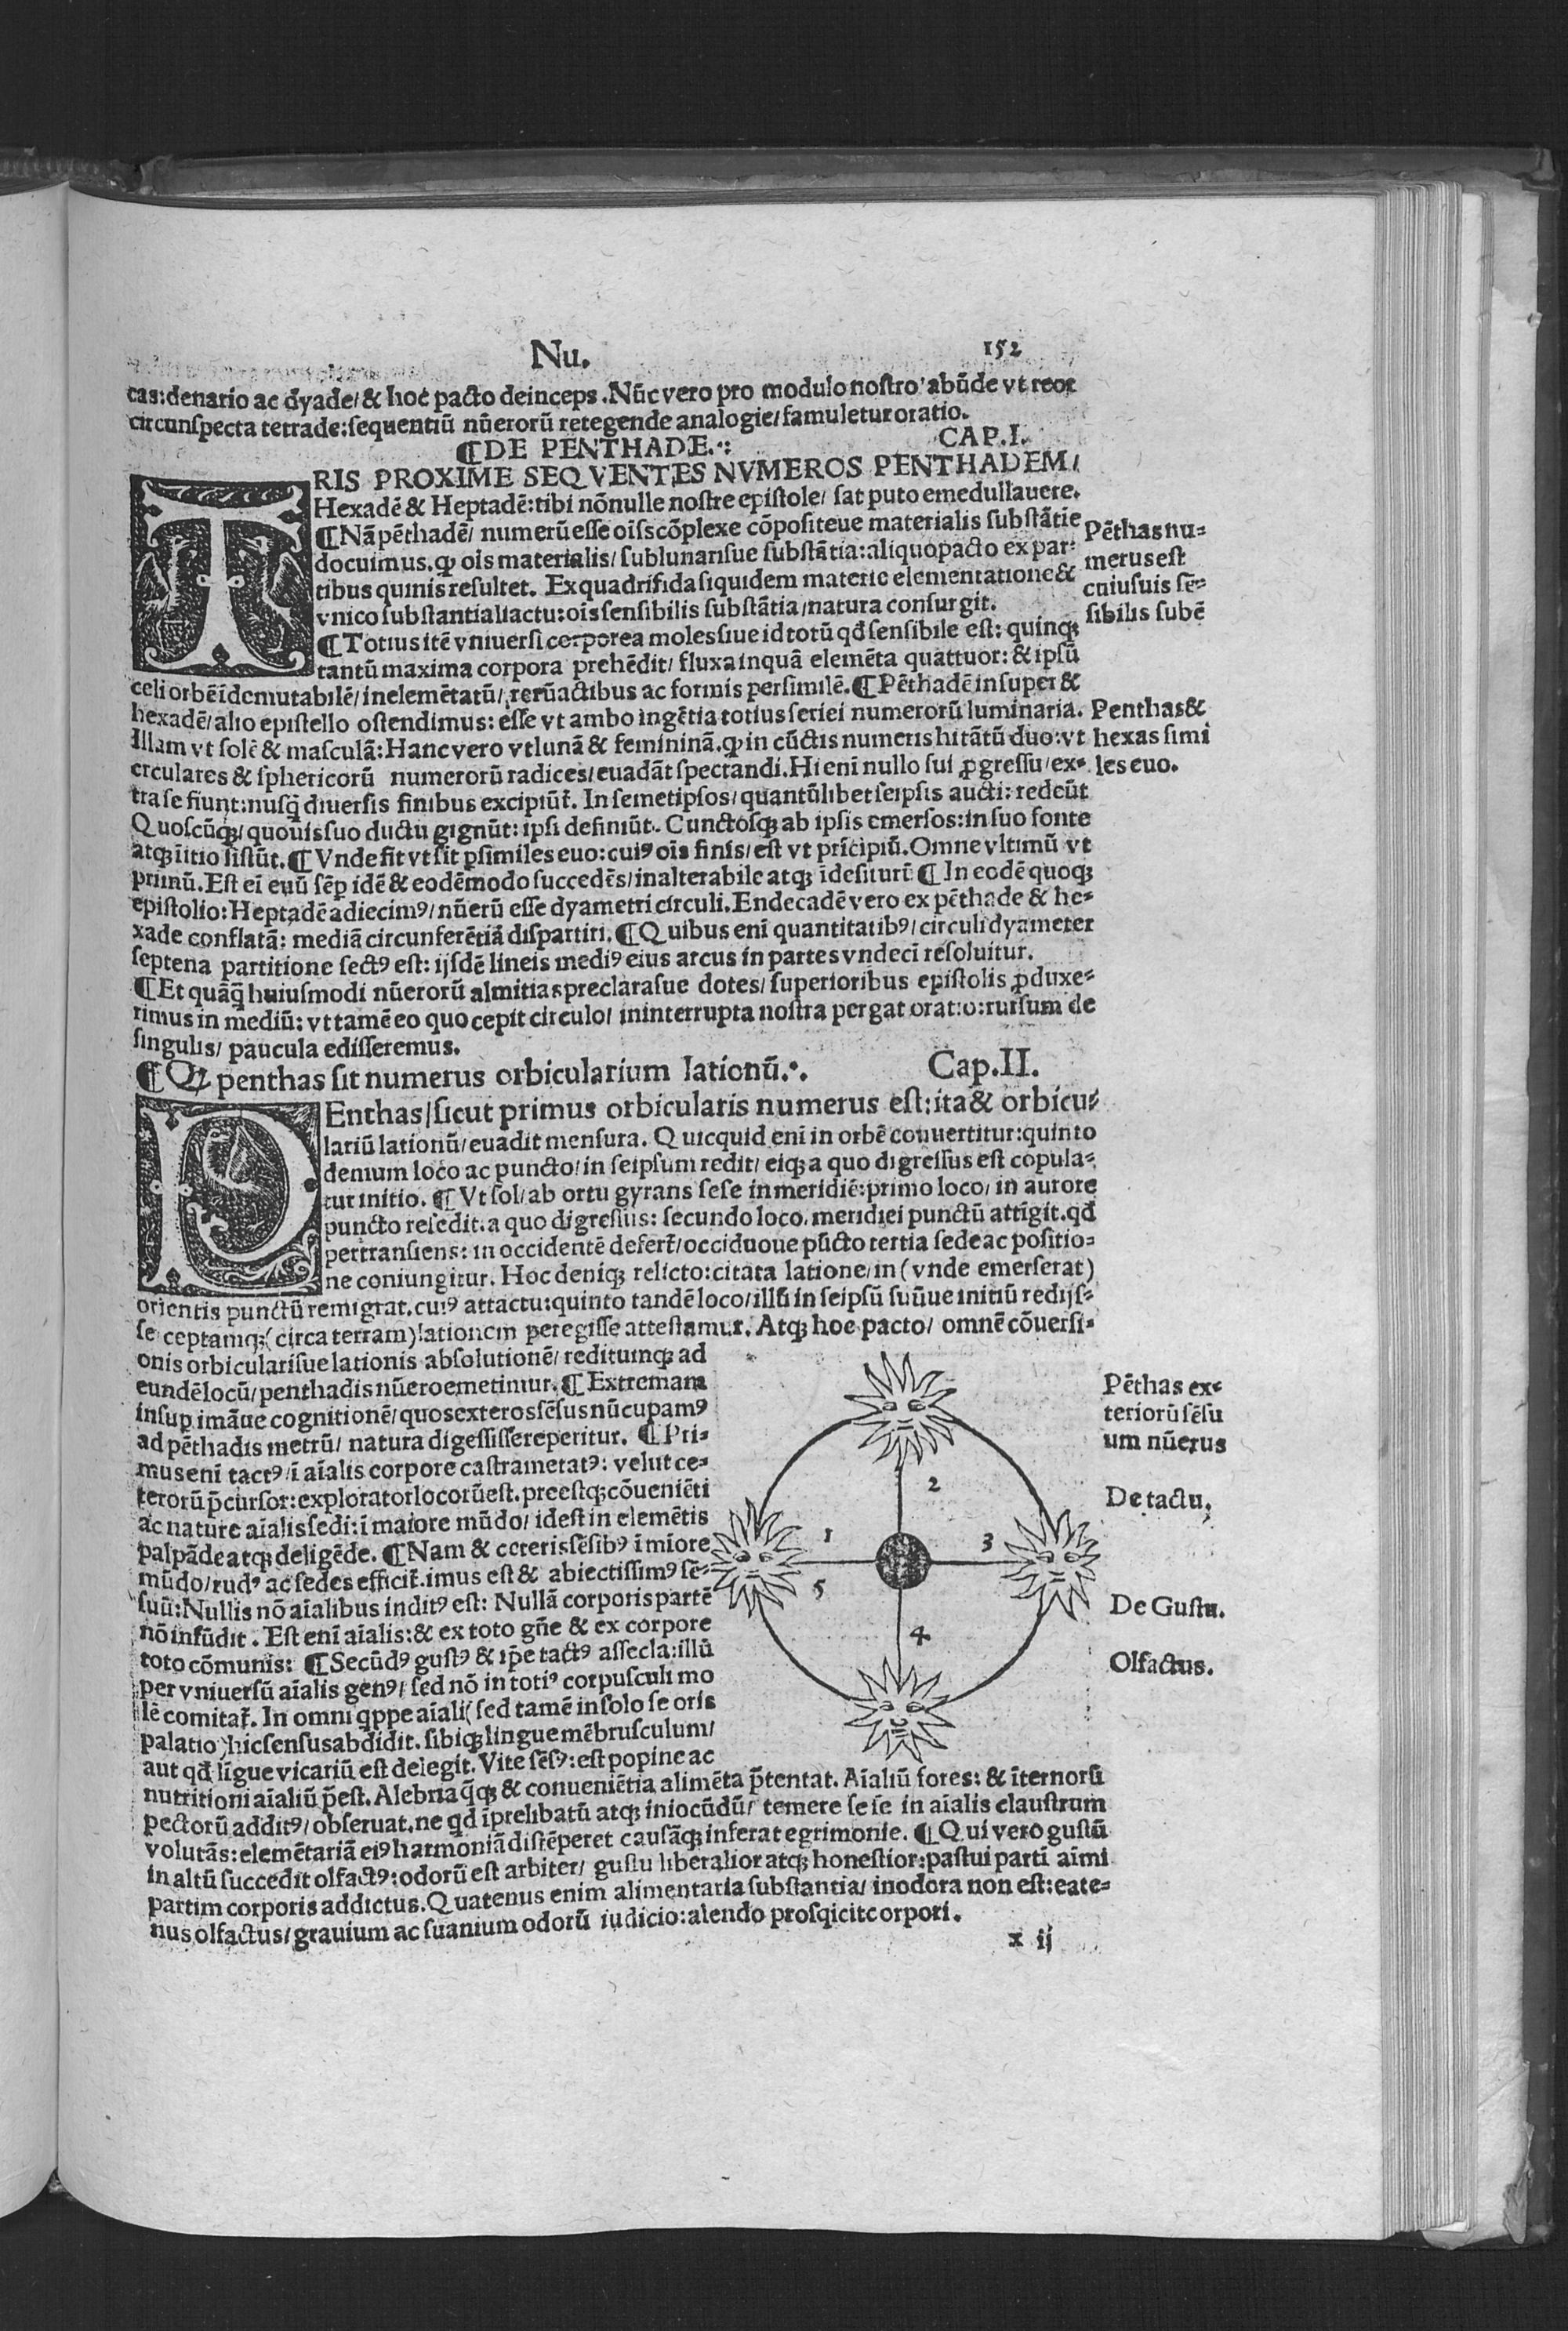 Nu.
152
cas:denario ac dyade/ & hoc pacto deinceps. Nūc vero pro modulo nostro abūde vt reor
circunspecta tetrade: sequentiū nūerorū retegende analogie/ famuletur oratio.
¶ DE PENTHADE.
CAP. I.
TRIS PROXIME SEQVENTES NVMEROS PENTHADEM/
Hexadē & Heptadē: tibi nōnulle nostre epistole/ sat puto emedullauere.
¶ Nā pēthadē/ numerū esse oīs cōplexe cōpositeue materialis substātie
docuimus. ꝙ ois materialis/ sublunarisue substātia: aliquo pacto ex par-
tibus quinis resultet. Ex quadrifida siquidem materie elementatione &
vnico substantiali actu: oīs sensibilis substātia/ natura consurgit.
¶ Totius itē vniuersi corporea moles siue id totū qd̄ sensibile est: quinqꝫ
tantū maxima corpora prehēdit/ fluxa inquā elemēta quattuor: & ipsū
celi orbē idemutabilē/ inelemētatū/ rerū actibus ac formis persimilē. ¶ Pēthadē insuper &
hexadē/ alio epistello ostendimus: esse vt ambo ingētia totius seriei numerorū luminaria.
Illam vt solē & masculā: Hanc vero vt lunā & femininā. ꝙ in cūctis numeris hi tātū duo: vt
crculares & sphericorū numerorū radices/ euadāt spectandi. Hi enī nullo sui ꝓgressu/ ex-
tra se fiunt: nusq̄ diuersis finibus excipiūt̄. In semetipsos/ quantūlibet seipsis aucti: redeūt
Quoscūqꝫ/ quouis suo ductu gignūt: ipsi definiūt. Cunctosqꝫ ab ipsis emersos: in suo fonte
atqꝫ īitio sistūt. ¶ Vnde fit vt sīt ꝑsimiles euo: cuiꝰ oīs finis/ est vt prīcipiū. Omne vltimū vt
primū. Est eī euū sēꝑ idē & eodē modo succedēs/ inalterabile atqꝫ īdesiturū ¶ In eodē quoqꝫ
epistolio: Heptadē adiecimꝰ/ nūerū esse dyametri circuli. Endecadē vero ex pēthade & he-
xade conflatā: mediā circunferētiā dispartiri. ¶ Quibus enī quantitatibꝰ/ circuli dyameter
septena partitione sectꝰ est: ijsdē lineis mediꝰ eius arcus in partes vndecī resoluitur.
¶ Et quāq̄ huiusmodi nūerorū almitias preclarasue dotes/ superioribus epistolis ꝓduxe-
rimus in mediū: vt tamē eo quo cepit circulo/ ininterrupta nostra pergat oratio: rursum de
singulis/ paucula edisseremus.
Pēthas nu-
merus est
cuiusuis sē-
sibilis subē
Penthas &
hexas simi
les euo.
¶ Qꝫ penthas sit numerus orbicularium lationū.
Cap. II.
PEnthas/ sicut primus orbicularis numerus est: ita & orbicu-
lariū lationū/ euadit mensura. Quicquid enī in orbē conuertitur: quinto
demum loco ac puncto/ in seipsum redit/ eiqꝫ a quo digressus est copula-
tur initio. ¶ Vt sol/ ab ortu gyrans sese in meridiē: primo loco/ in aurore
puncto resedit. a quo digressus: secundo loco, meridiei punctū attīgit. qd̄
pertransiens: in occidentē defert̄/ occiduoue pūcto tertia sede ac positio-
ne coniungitur. Hoc deniqꝫ relicto: citata latione/ in (vnde emerserat)
orientis punctū remigrat. cuiꝰ attactu: quinto tandē loco/ illū in seipsū suūue initiū redijs-
se ceptamqꝫ (circa terram) lationem peregisse attestamur. Atqꝫ hoc pacto/ omnē cōuersi-
onis orbicularisue lationis absolutionē/ reditumqꝫ ad
eundē locū/ penthadis nūero emetimur. ¶ Extremam
insuꝑ imāue cognitionē/ quos exteros sēsus nūcupamꝰ
ad pēthadis metrū/ natura digessisse reperitur. ¶ Pri-
mus enī tactꝰ/ ī aīalis corpore castrametatꝰ: velut ce-
terorū p̄cursor: explorator locorū est. preestqꝫ cōueniēti
ac nature aīalis sedi: ī maiore mūdo/ idest in elemētis
palpāde atqꝫ deligēde. ¶ Nam & ceteris sēsibꝰ ī miore
mūdo/ rudꝰ ac sedes efficit̄. imus est & abiectissimꝰ sē-
suū: Nullis nō aīalibus inditꝰ est: Nullā corporis partē
nō infūdit. Est enī aīalis: & ex toto gn̄e & ex corpore
toto cōmunis: ¶ Secūdꝰ gustꝰ & ip̄e tactꝰ assecla: illū
per vniuersū aīalis genꝰ/ sed nō in totiꝰ corpusculi mo
lē comitat̄. In omni qppe aīali (sed tamē in solo se oris
palatio) hic sensus abdidit. sibiqꝫ lingue mēbrusculum/
aut qd̄ līgue vicariū est delegit. Vite sēsꝰ: est popine ac
nutritioni aīaliū p̄est. Alebria q̄qꝫ & conueniētia alimēta p̄tentat. Aīaliū fores: & īternorū
pectorū additꝰ/ obseruat. ne qd īprelibatū atqꝫ iniocūdū/ temere sese in aīalis claustrum
volutās: elemētariā eiꝰ harmoniā distēperet causāqꝫ inferat egrimonie. ¶ Qui vero gustū
in altū succedit olfactꝰ: odorū est arbiter/ gustu liberalior atqꝫ honestior: pastui partī aīmi
partim corporis addictus. Quatenus enim alimentaria substantia/ inodora non est: eate-
nus olfactus/ grauium ac suauium odorū iudicio: alendo prosqicit corpori.
2
1
3
5
4
Pēthas ex-
teriorū sēsu
um nūerus
De tactu.
De Gustu.
Olfactus.
x ij